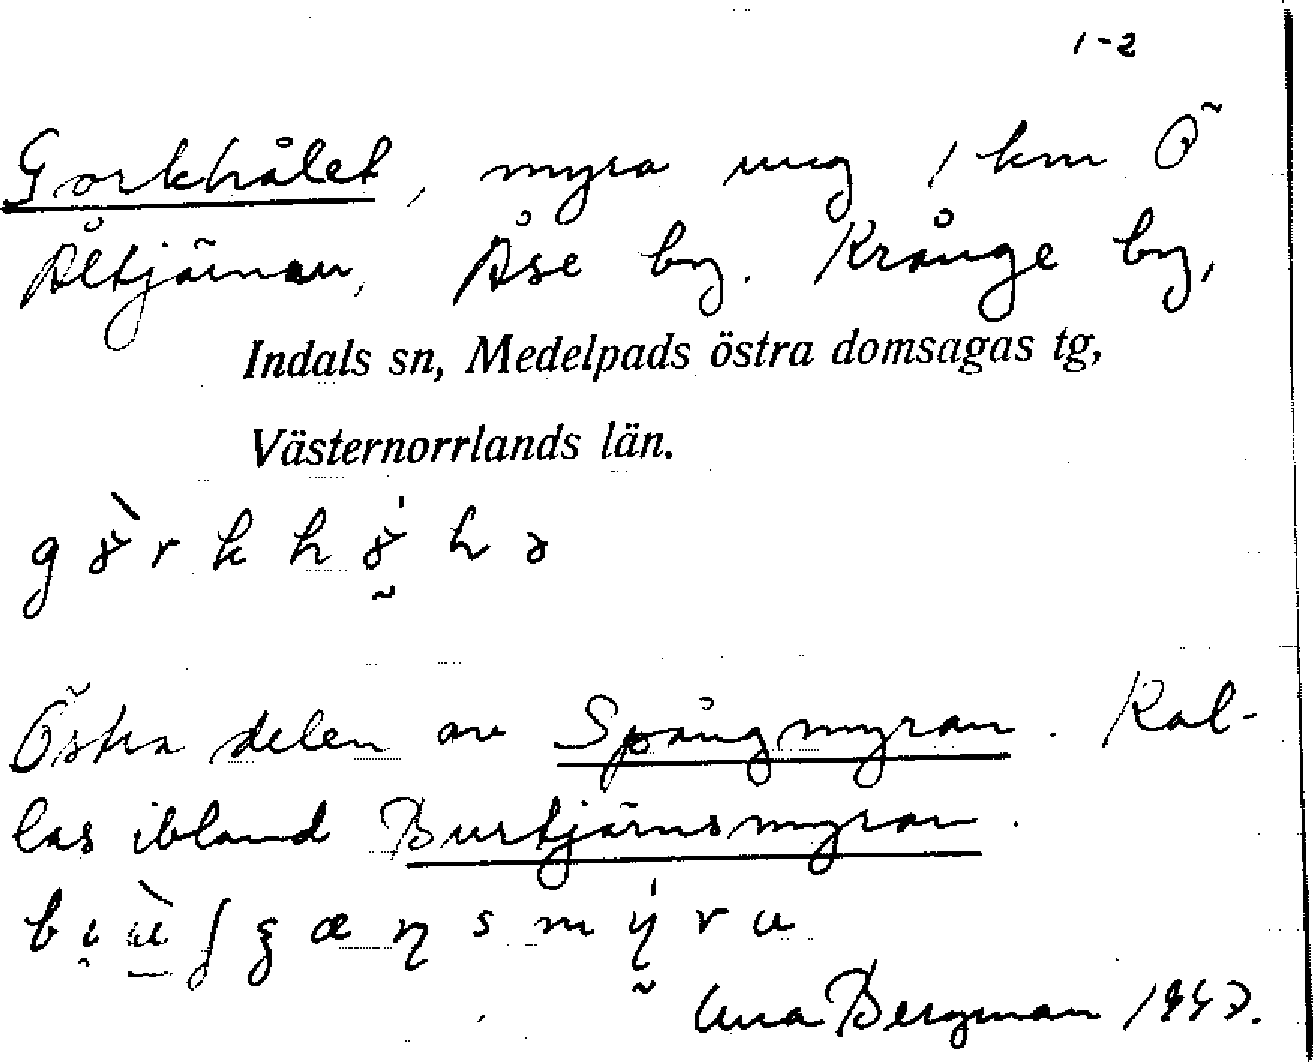 1-2
Gorkhålet, myra ung 1 km Ö
Åltjärnen, Åse by. Krånge by,
Indals sn, Medelpads östra domsagas tg,
Västernorrlands län.
Östra delen av Spångmyran. Kal-
las ibland Burtjärnsmyran.
Bergman 1947.